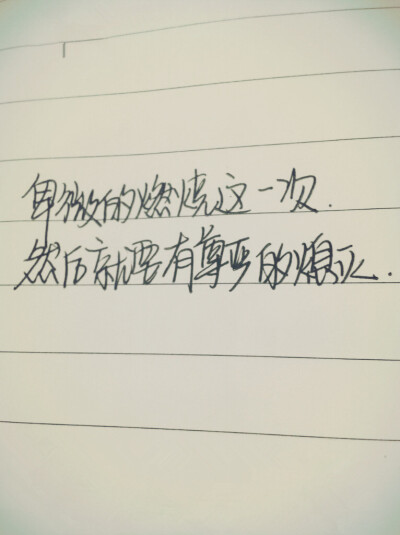 卑微的燃烧这一次.
然后就要有尊严的熄灭.